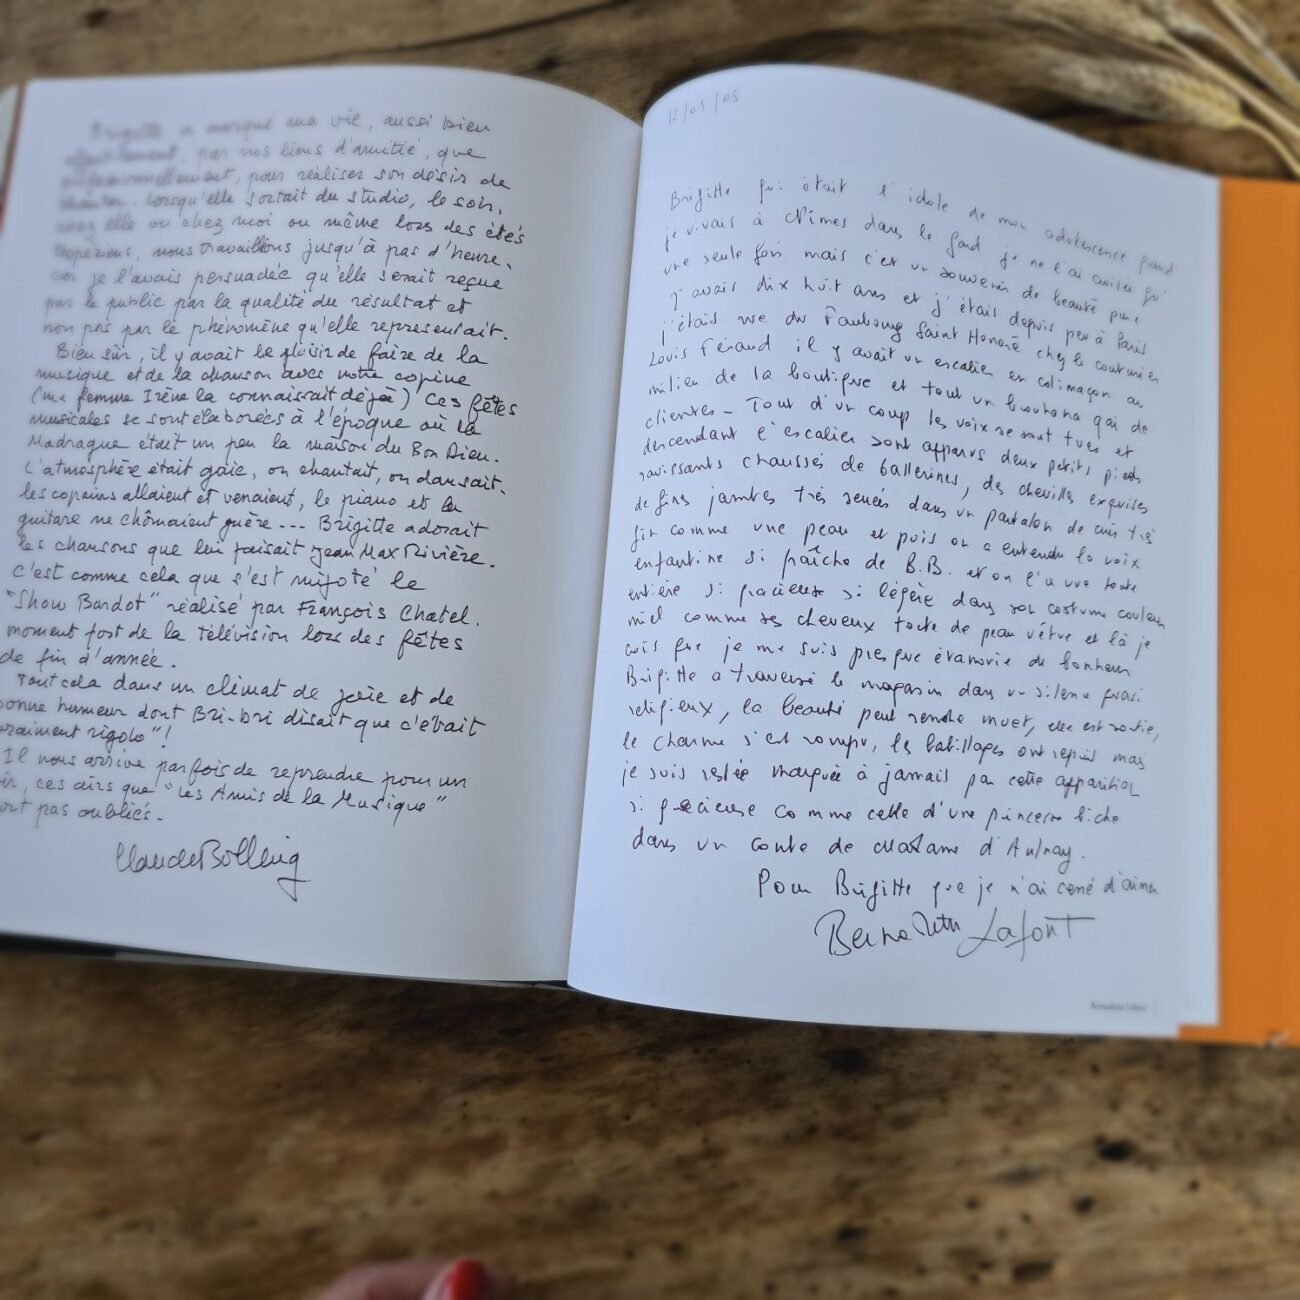 Brigitte a marqué ma vie, aussi bien
par nos liens d'amitié, que
professionnellement, pour réaliser son désir de
chanter. Lorsqu'elle sortait du studio, le soir,
chez elle ou chez moi ou même lors des étés
tropéziens, nous travaillions jusqu'à pas d'heure,
car je l'avais persuadée qu'elle serait reçue
par le public par la qualité du résultat et
non pas par le phénomène qu'elle représentait.
Bien sûr, il y avait le plaisir de faire de la
musique et de la chanson avec notre copine
(ma femme Irène la connaissait déjà) Ces fêtes
musicales se sont élaborées à l'époque où la
Madrague était un peu la maison du Bon Dieu.
L'atmosphère était gaie, on chantait, on dansait,
les copains allaient et venaient, le piano et la
guitare ne chômaient guère --- Brigitte adorait
les chansons que lui faisait Jean Max Rivière.
C'est comme cela que s'est mijoté le
"Show Bardot" réalisé par François Chatel.
moment fort de la télévision lors des fêtes
de fin d'année.
Tout cela dans un climat de joie et de
bonne humeur dont Bri-bri disait que c'était
vraiment rigolo"!
Il nous arrive parfois de reprendre pour un
ces airs que "Les Amis de la Musique"
ont pas oubliés.
Claude Bolling
12/05/05
Brigitte qui était l'idole de mon adolescence quand
je vivais à Nîmes dans le Gard je ne l'ai croisée qu'
une seule fois mais c'est un souvenir de beauté pure
j'avais dix huit ans et j'étais depuis peu à Paris
j'étais rue du Faubourg Saint Honoré chez le couturier
Louis Féraud il y avait un escalier en colimaçon au
milieu de la boutique et tout un brouhaha gai de
clientes - Tout d'un coup les voix se sont tues et
descendant l'escalier sont apparus deux petits pieds
ravissants chaussés de ballerines, des chevilles exquises
de fines jambes très serrées dans un pantalon de cuir très
fin comme une peau et puis on a entendu la voix
enfantine si fraîche de B.B. et on l'a vue toute
entière si gracieuse si légère dans son costume couleur
miel comme ses cheveux toute de peau vêtue et là je
crois que je me suis presque évanouie de bonheur
Brigitte a traversé le magasin dans un silence quasi
religieux, la beauté peut rendre muet, elle est sortie,
le charme s'est rompu, les babillages ont repris mais
je suis restée marquée à jamais par cette apparition
si gracieuse comme celle d'une princesse biche
dans un conte de Madame d'Aulnay.
Pour Brigitte que je n'ai cessé d'aimer
Bernadette Lafont
Bernadette Lafont